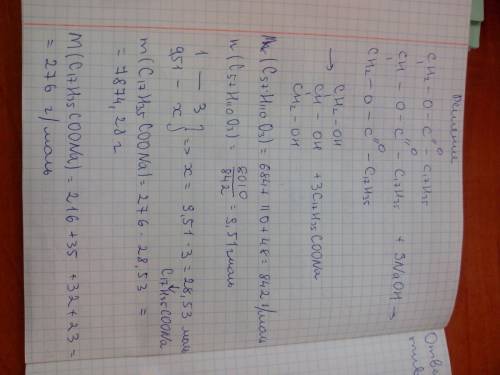 Решение
CH₂ – O – C =O – C₁₇H₃₅
CH – O – C =O – C₁₇H₃₅ + 3NaOH →
CH₂ – O – C =O – C₁₇H₃₅
→ CH₂ – OH
CH – OH + 3C₁₇H₃₅COONa
CH₂ – OH
M(C₅₇H₁₁₀O₃) = 684 + 110 + 48 = 842 г/моль
n(C₅₇H₁₁₀O₃) = 8010/842 = 9,51 моль
1 — 3
9,51 – x } => x = 9,51 · 3 = 28,53 моль
C₁₇H₃₅COONa
m(C₁₇H₃₅COONa) = 276 · 28,53 =
= 7874,28 г
M(C₁₇H₃₅COONa) = 216 + 35 + 32 + 23 =
= 276 г/моль